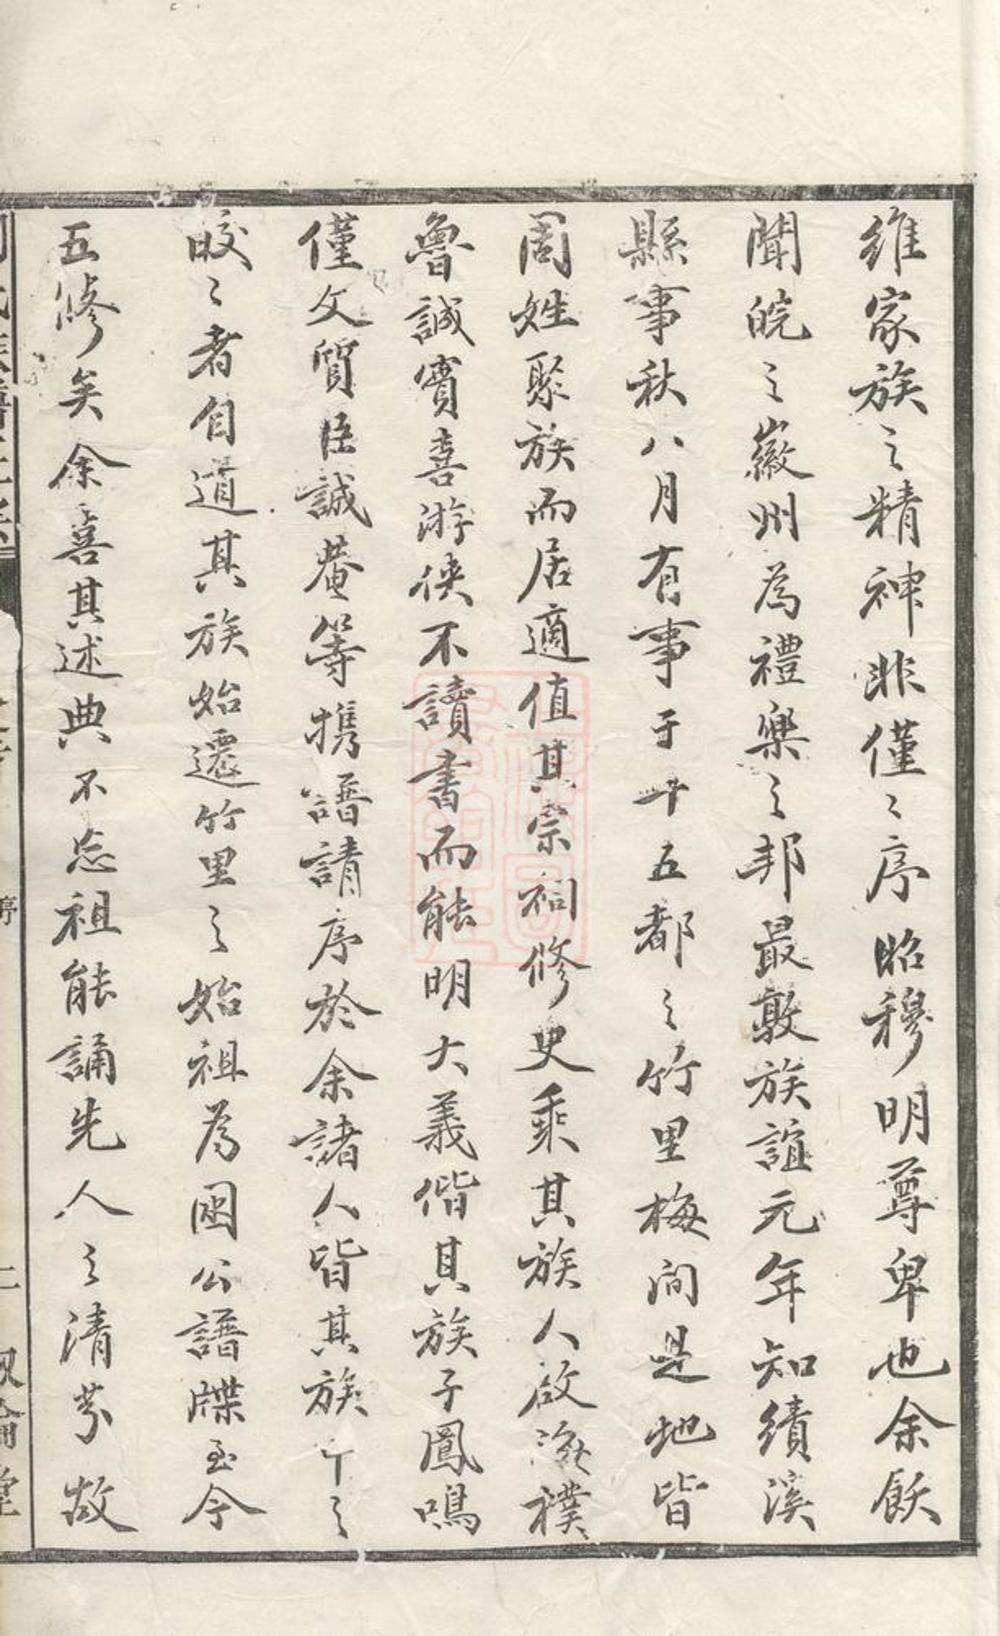 維家族之精神非僅〻序昭穆明尊卑也余飫
聞皖之徽州為禮樂之邦最敦族誼元年知績溪
縣事秋八月有事于十五都之竹里梅澗是地皆
周姓聚族而居適值其宗祠修史乘其族人啟海樸
魯誠實喜游俠不讀書而能明大義偕其族子鳳鳴
僅文質臣誠菴等攜譜請序於余諸人皆其族中之
皎〻者自道其族始遷竹里之始祖為囦公譜牒至今
五修矣余喜其述典不忘祖能誦先人之清芬故
序
二